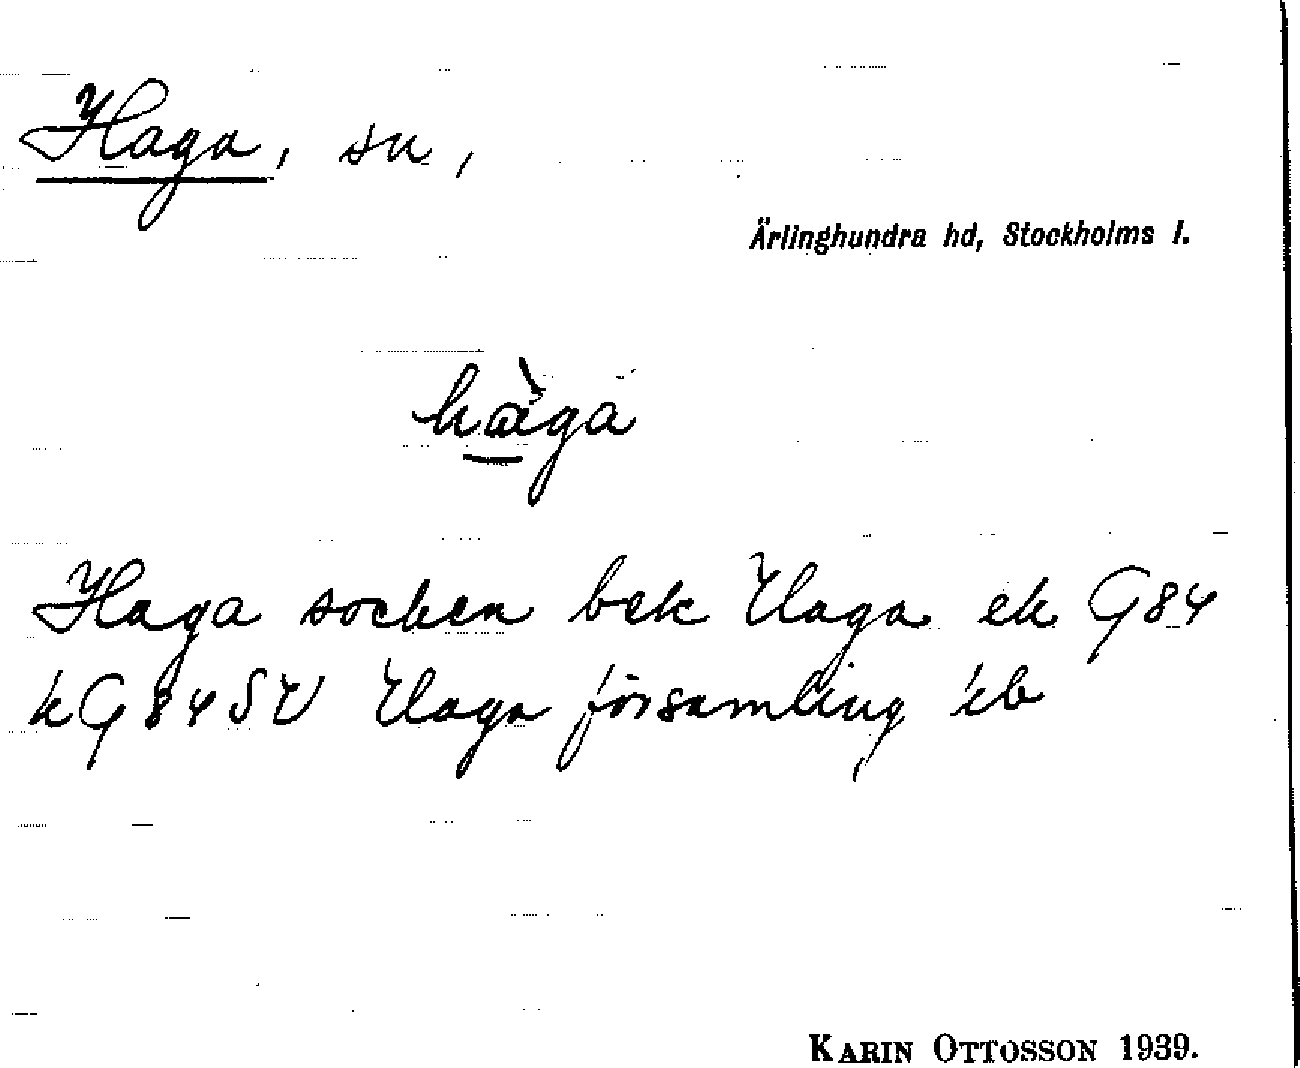 Haga, sn,
Ärlinghundra hd, Stockholms l.
hàga
Haga socken bek Haga ek G84
kG84SV Haga församling kb
KARIN OTTOSSON 1939.